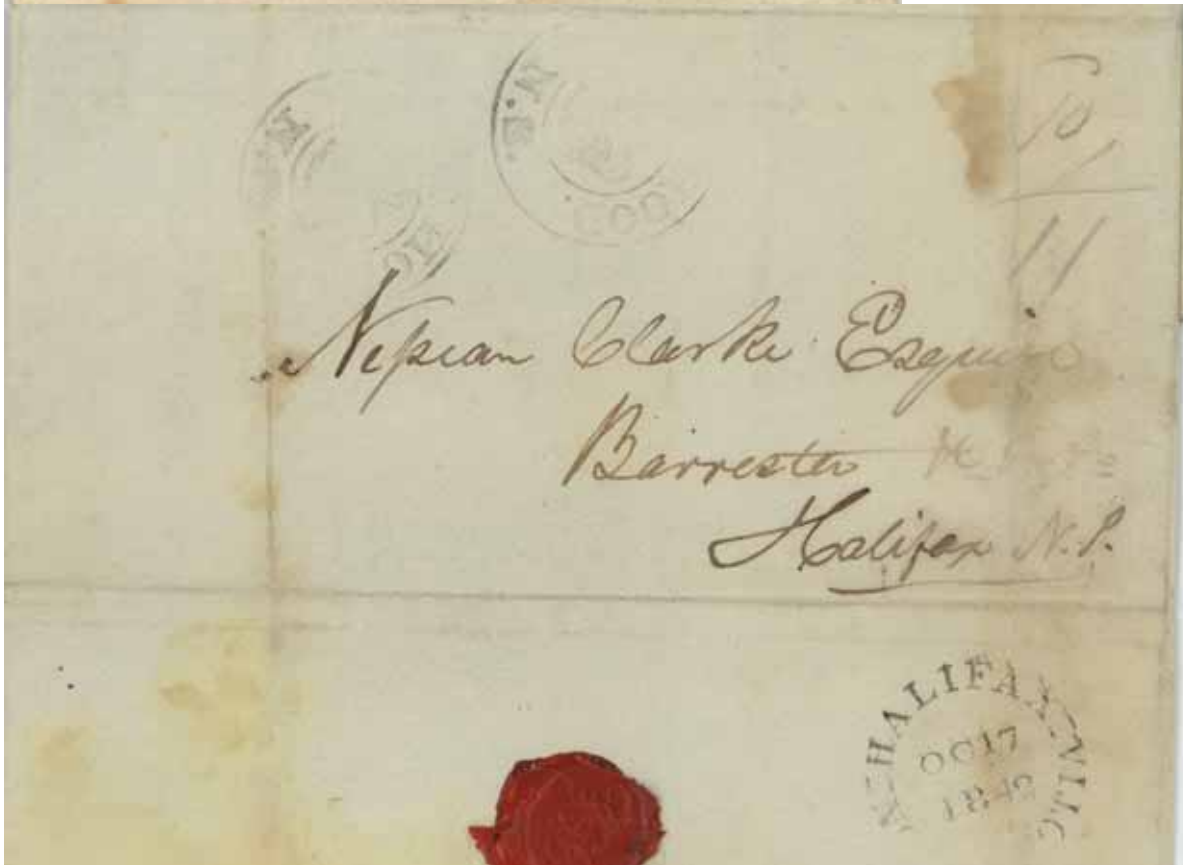 N.B.
COO
10
1
11
Nepean Clarke Esquire
Barrester
Halifax N.S.
HALIFAX
OC 17
184